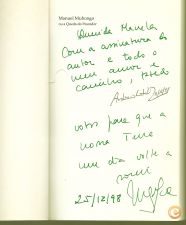 Manuel Muhongo
ou a Queda do Pescador
Querida Manela
Com a assinatura do
autor e todo o
meu amor e
carinho,
votos para que a
nossa Terra
um dia volte a
sorrir
25/12/98